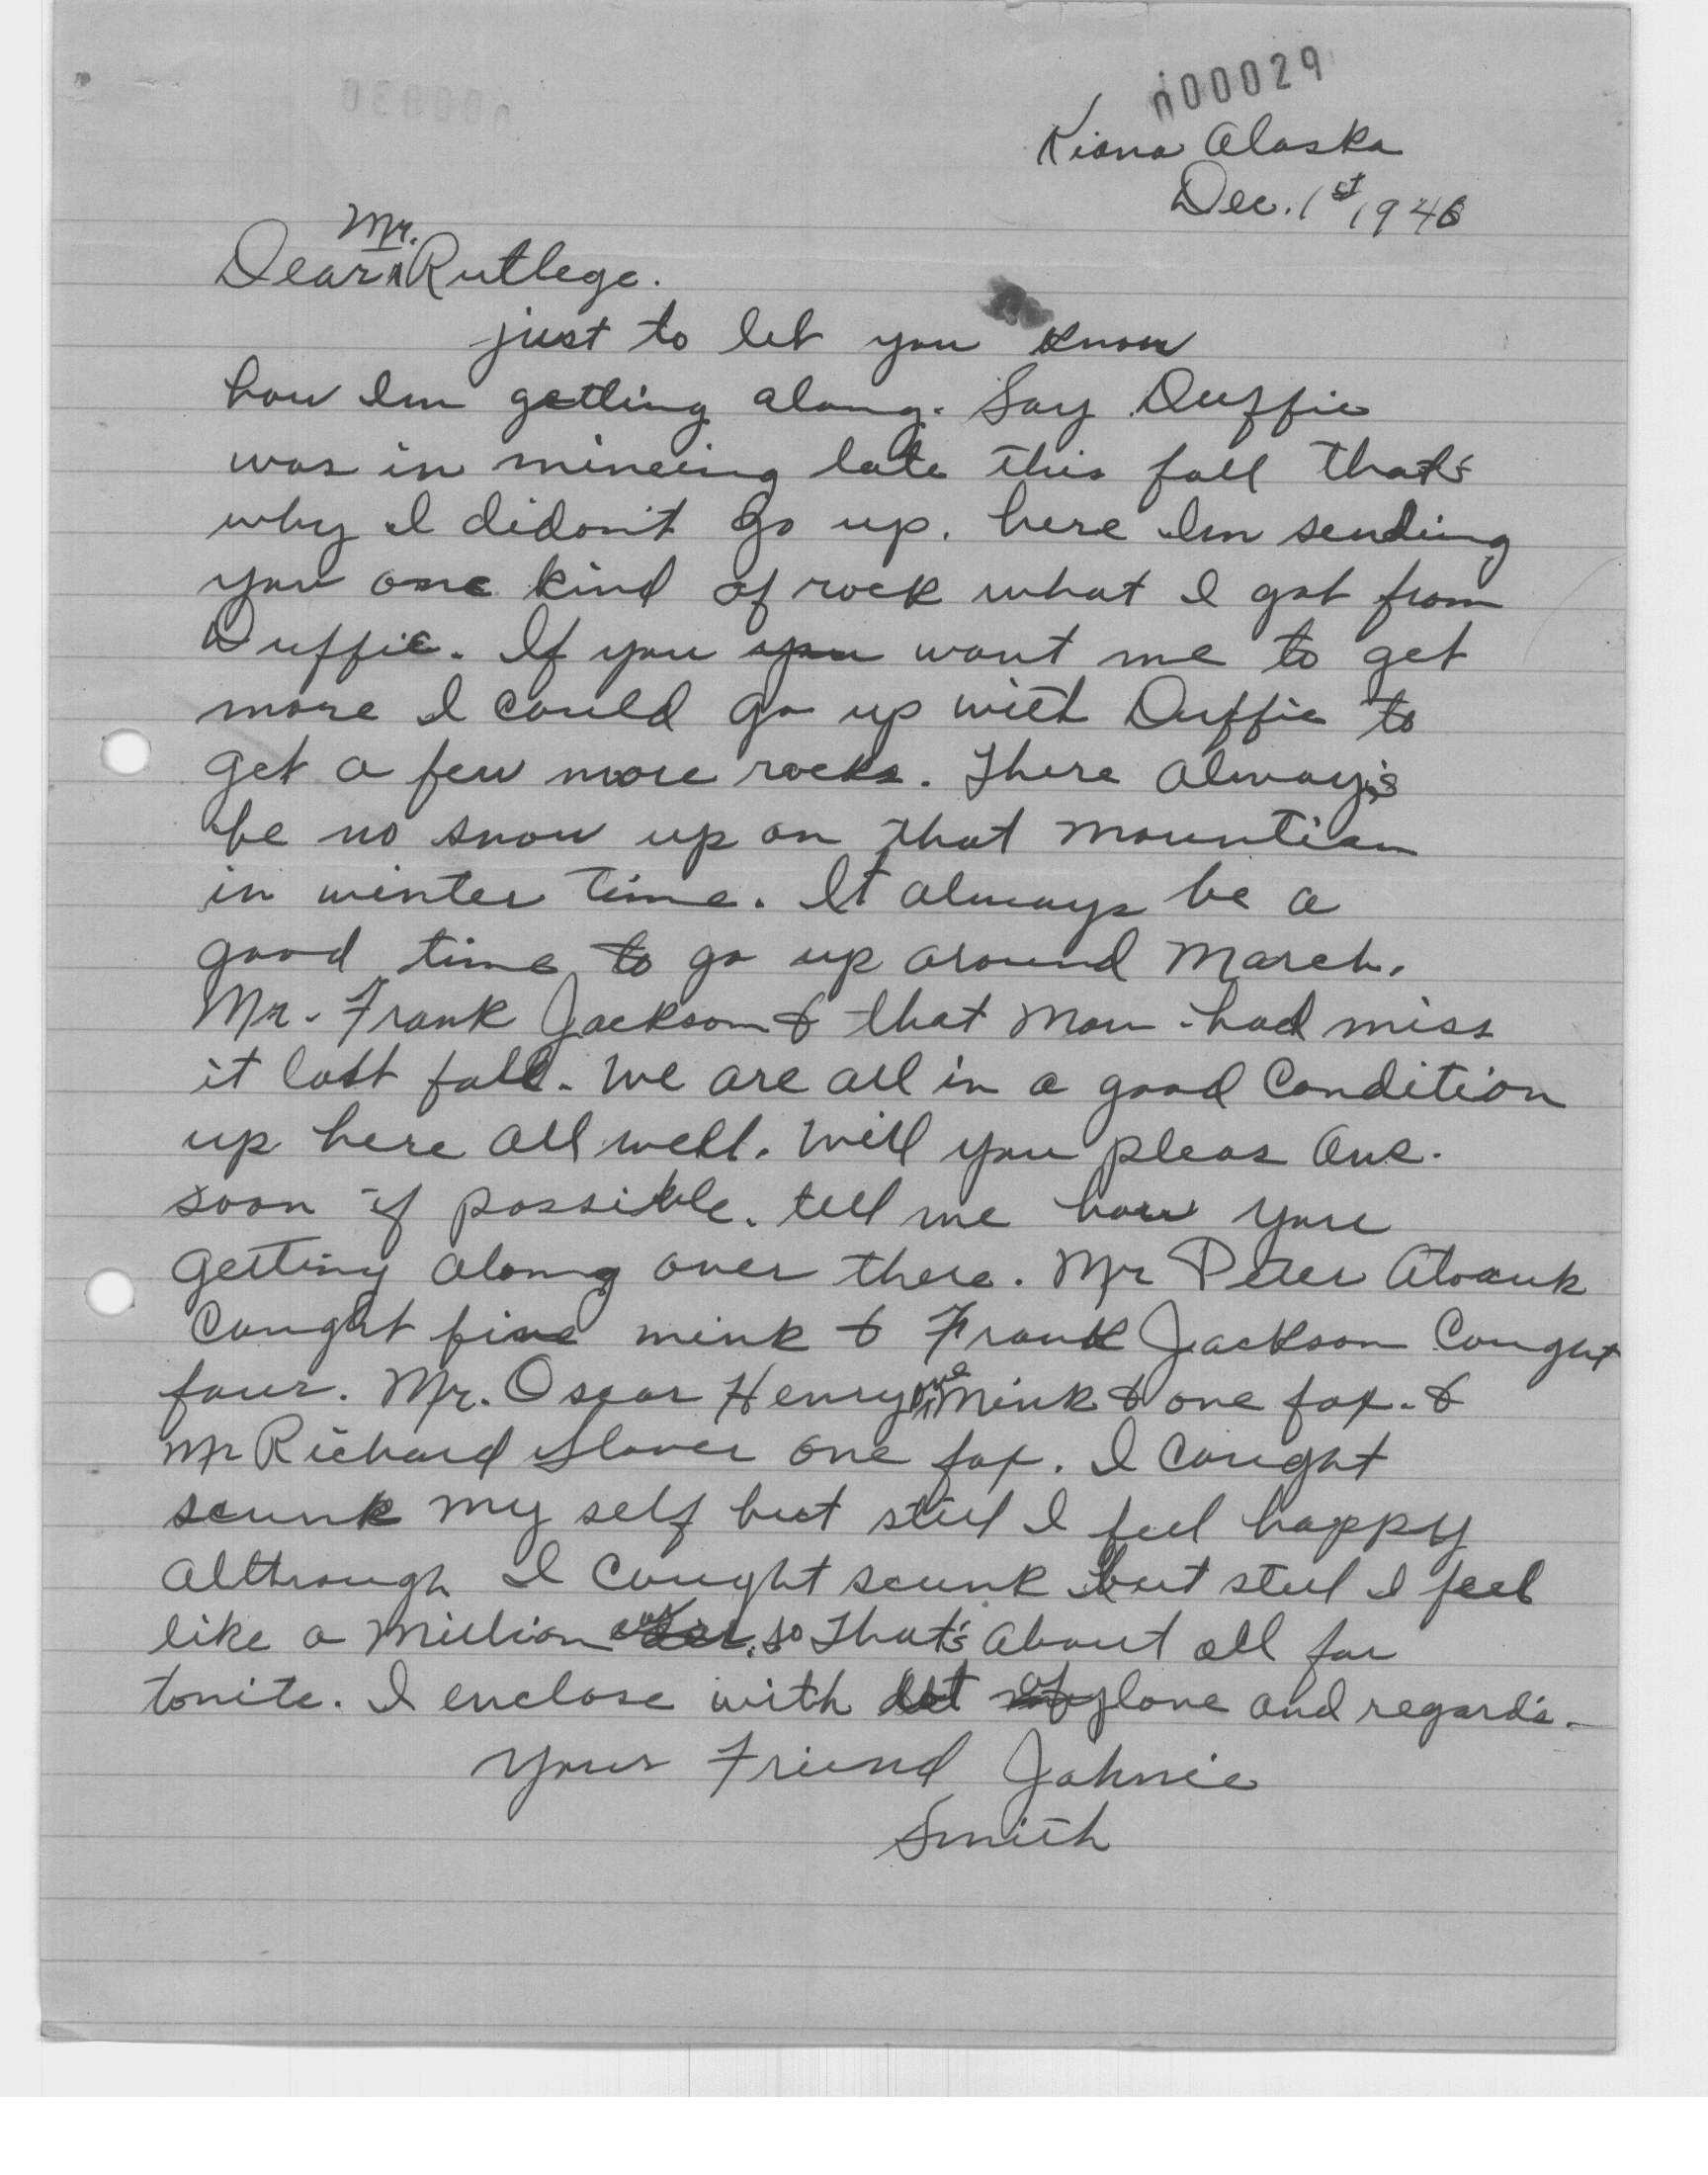 n00029
Kiana Alaska
Dec. 1st, 1946
Mr.
Dear Rutlege.
just to let you know
how Im getting along. Say Duffie
was in mineing late this fall that's
why I didon't go up. here Im sending
you one kind of rock what I got from
Duffie. If you you want me to get
more I could go up with Duffie to
get a few more rocks. There always
be no snow up on that mountian
in winter time. It always be a
good time to go up around March.
Mr. Frank Jackson & that man had miss
it last fall. We are all in a good Condition
up here all well. Will you pleas Ans.
soon if possible. tell me how you
getting along over there. Mr Peter
Caught five mink & Frank Jackson Caught
four. Mr. Oscar Henry one Mink & one fox. &
Mr Richard Glover one fox. I Caught
scunk my self but still I feel happy
Although I Caught scunk but still I feel
like a Million so That's About all for
tonite. I enclose with lot of love and regard's.
Your Friend Johnie
Smith